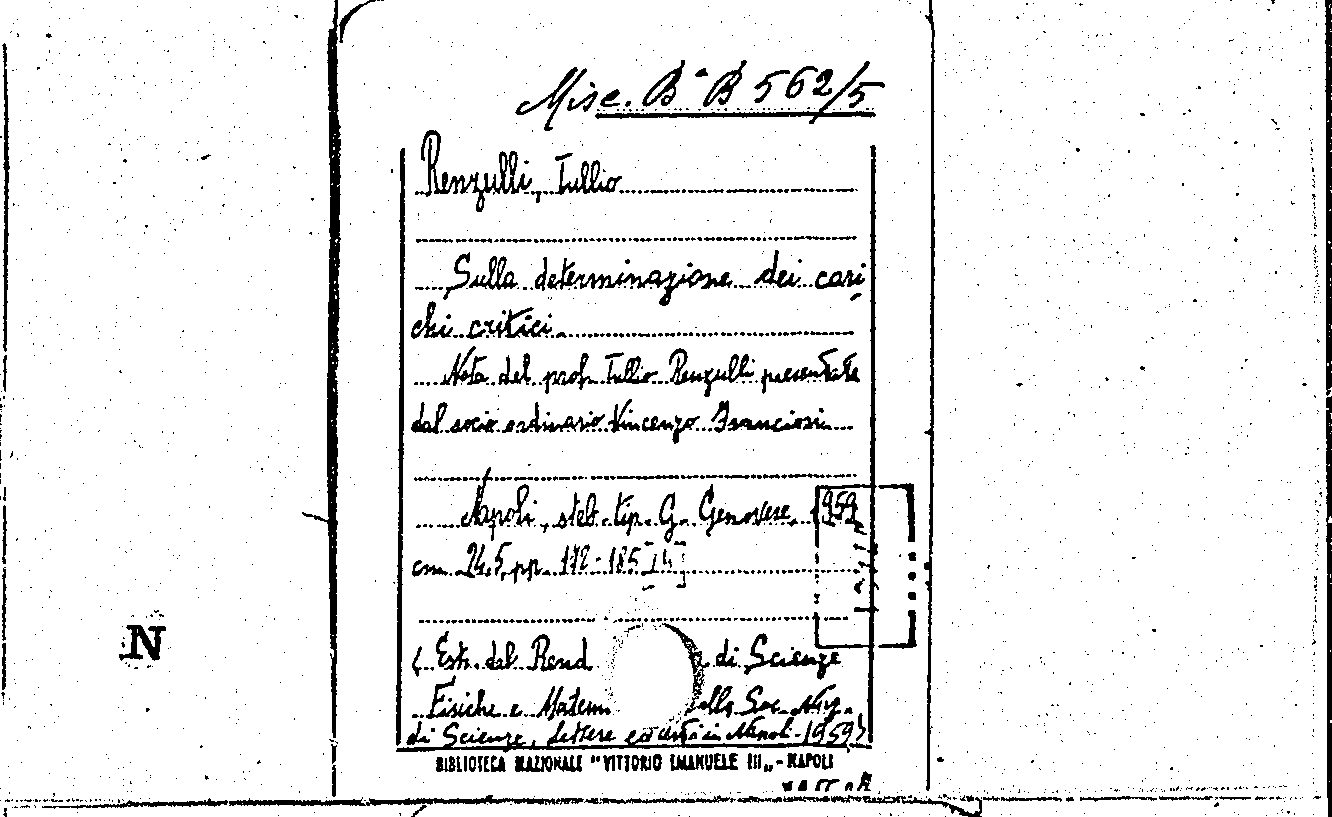 Misc. Bª B 562/5
Renzulli, Tullio
Sulla determinazione dei cari
chi critici.
Nota del prof. Tullio Renzulli presentata
dal socio ordinario Vincenzo Franciosi.
Napoli, stab. tip. G. Genovese, 1959
cm. 24,5, pp. 172-185
( Estr. dal Rend di Scienze
Fisiche e Matem Soc. Naz.
di Scienze, Lettere ed Arti in Napoli. 1959)
BIBLIOTECA NAZIONALE "VITTORIO EMANUELE III„ - NAPOLI
N